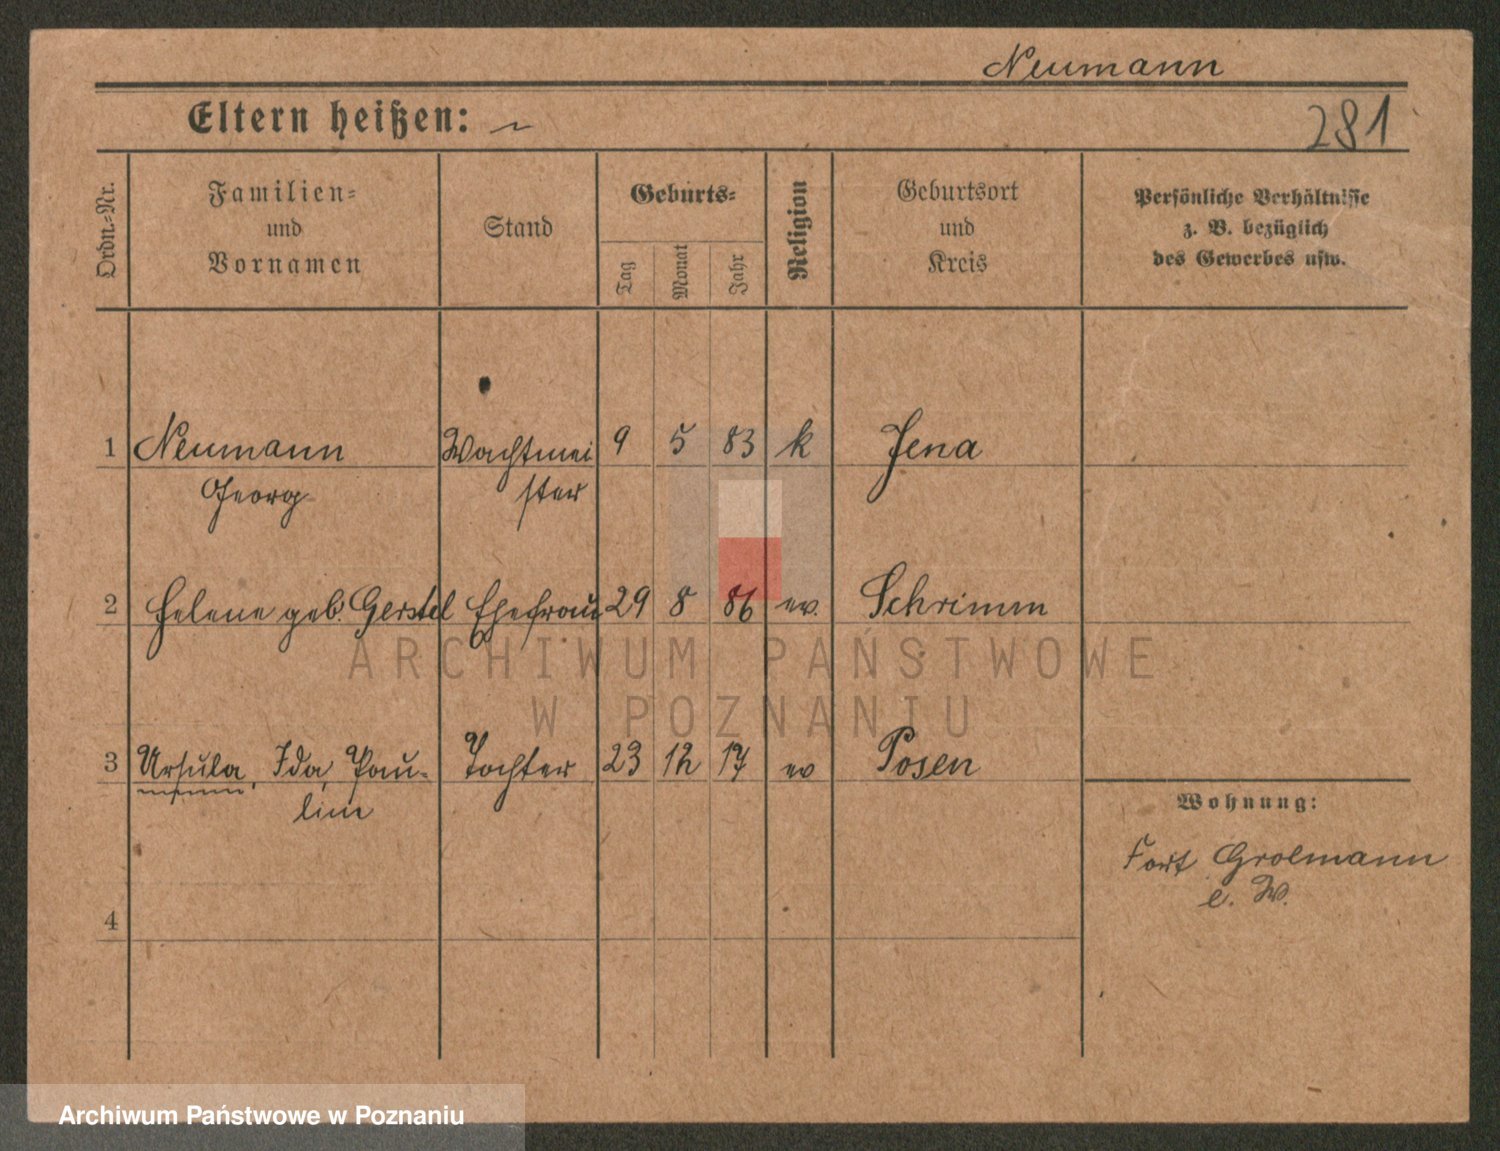 Neumann
Eltern heißen:
281
Ordn.-Nr.
Familien-
und
Vornamen
Stand
Geburts-
Tag
Monat
Jahr
Religion
Geburtsort
und
Kreis
Persönliche Verhältnisse
z. B. bezüglich
des Gewerbes usw.
1 Neumann Wachtmei 9 5 83 k Jena
Georg ster
2 Helene geb. Gerstel Ehefrau 29 8 86 ev. Schrimm
ARCHIWUM PAŃSTWOWE
W POZNANIU
3 Ursula, Ida, Pau- Tochter 23 12 17 ev Posen
line
Wohnung:
Fort Grolmann
e. W.
4
Archiwum Państwowe w Poznaniu